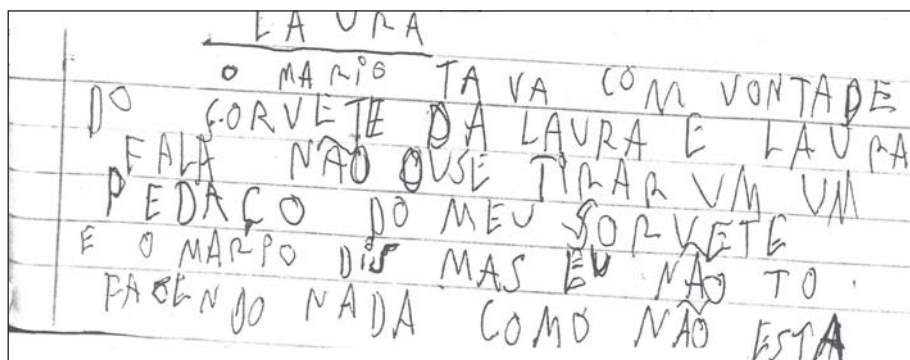 LAURA
O MARIO TAVA COM VONTADE
DO SORVETE DA LAURA E LAURA
FALA NÃO OUSE TIRAR UM UM
PEDAÇO DO MEU SORVETE
E O MARIO DIS MAS EU NÃO TO
FACENDO NADA COMO NÃO ESTA